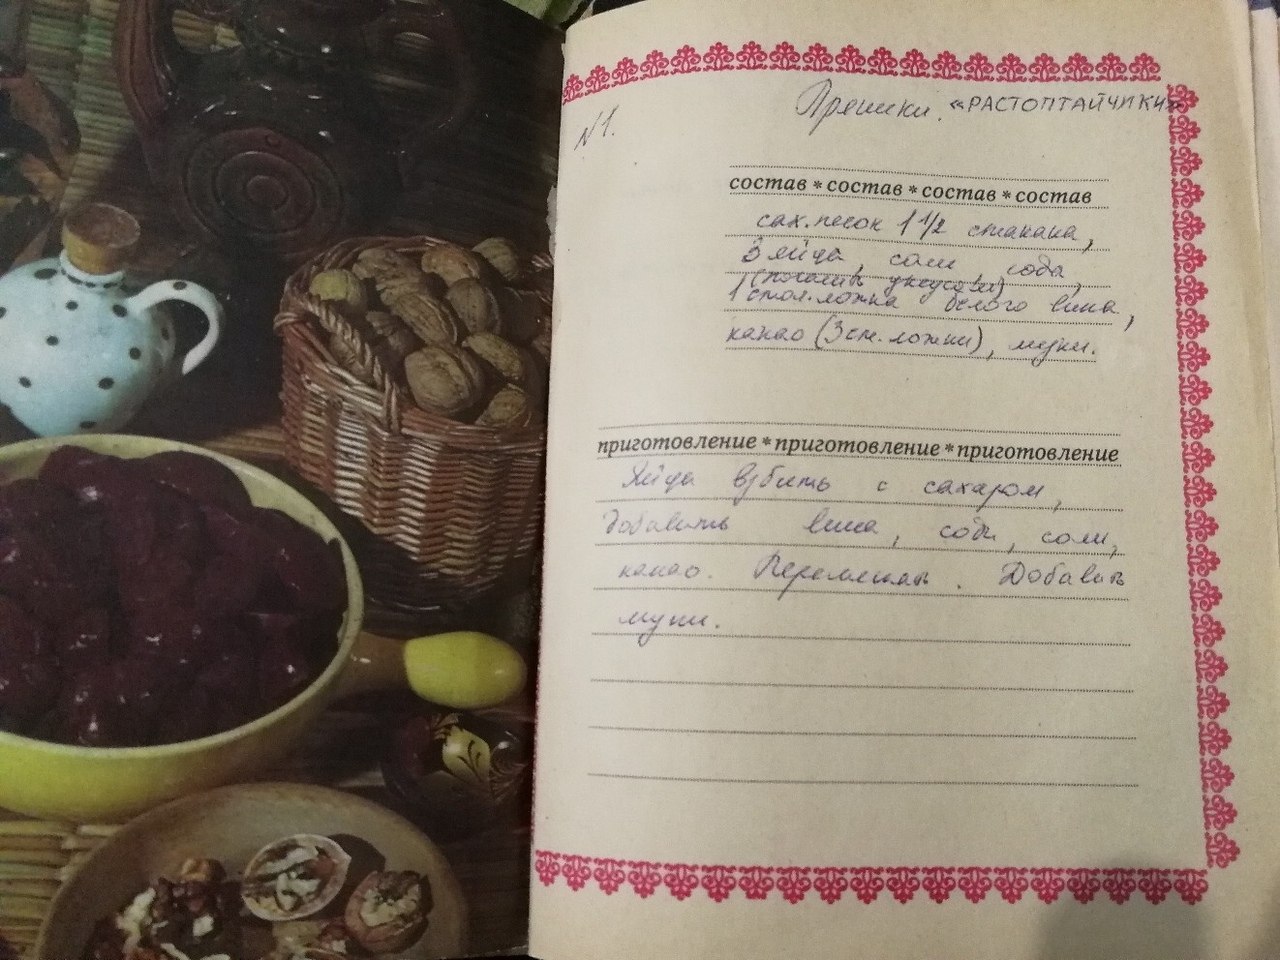 N1.
Пряники. «РАСТОПТАЙЧИКИ»
состав * состав * состав * состав
сах. песок 1 1/2 стакана,
3 яйца, соли, сода,
(погасить уксусом)
1 стол. ложка белого вина,
какао (3 ст. ложки), муки.
приготовление * приготовление * приготовление
Яйца взбить с сахаром,
добавить вина, соды, соли,
какао. Перемешать. Добавить
муки.